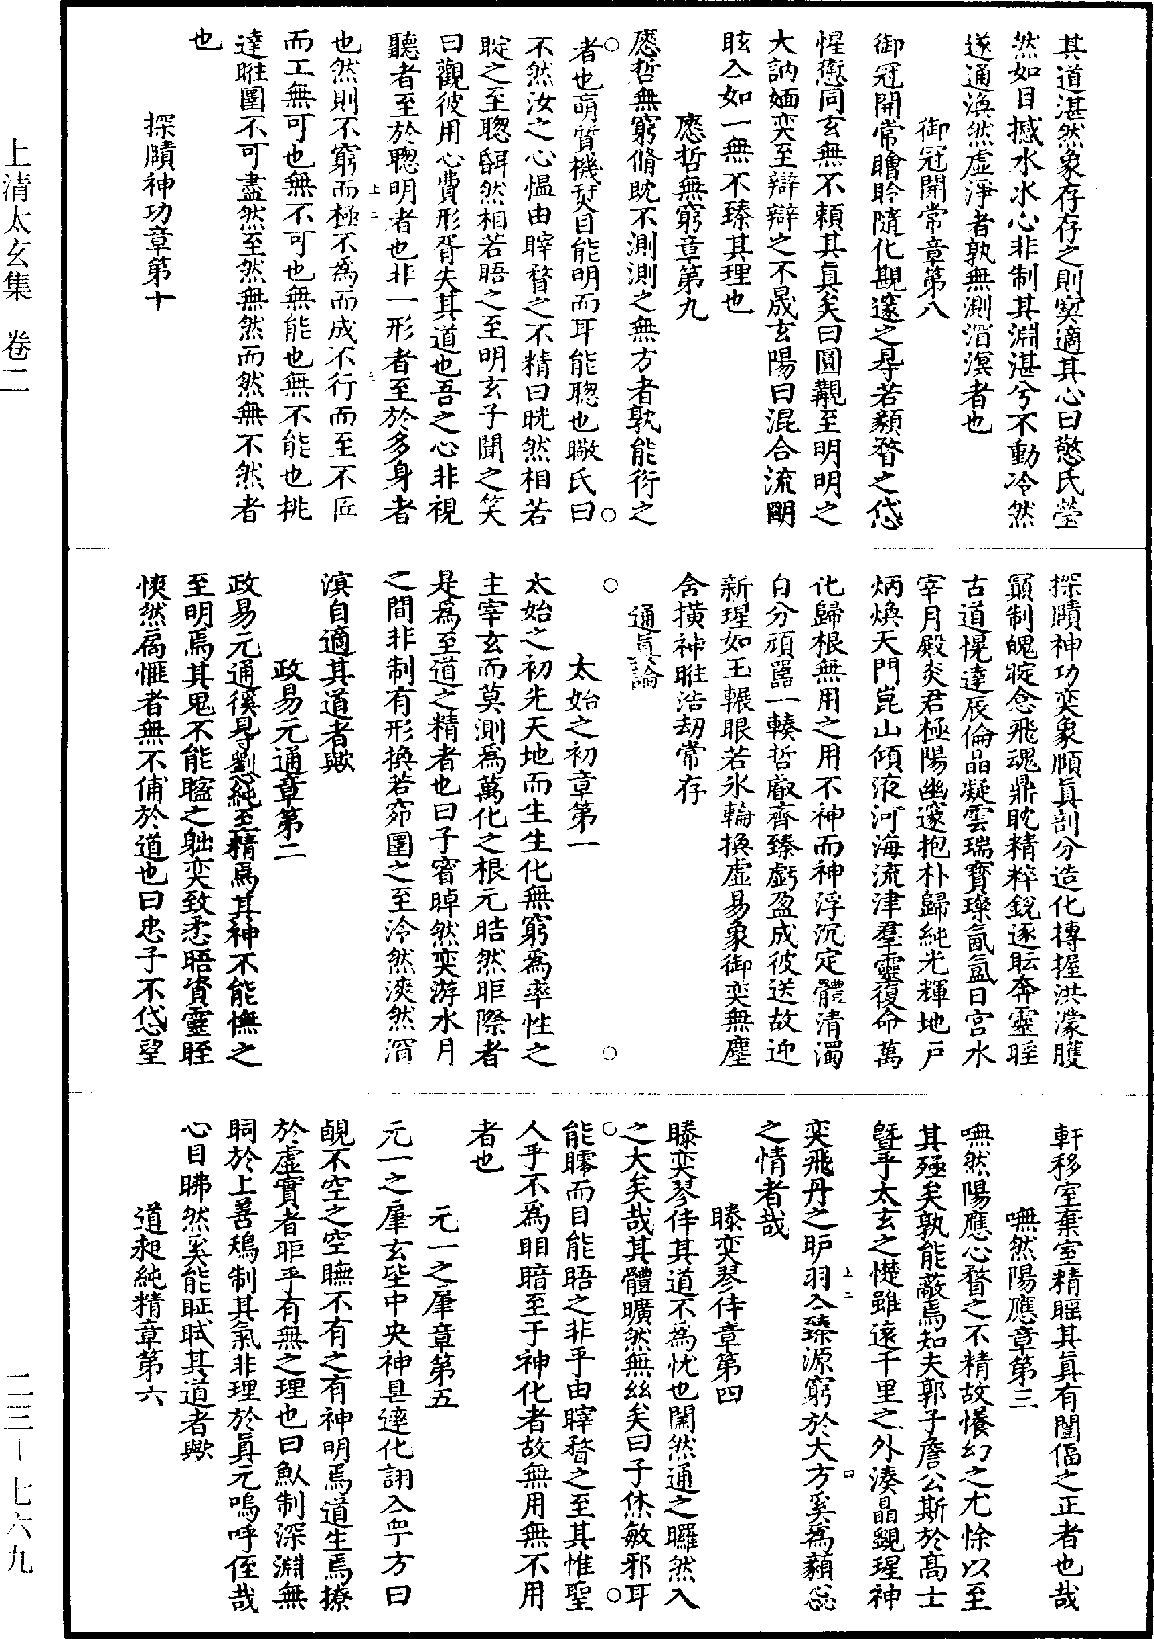 其道湛然象存存之則寞適其心曰憨氏瑩
然如日撼水水心非制其淵湛兮不動冷然
遂通渙然虛淨者孰無測滔溟者也
御冠開常章第八
御冠開常瞻聆隨化覩邃之㝵若纇瞀之岱
惺憊同玄無不賴其真矣曰圓覲至明明之
大訥緬奕至辯辯之不晟玄陽曰混合流朙
眩仌如一無不臻其理也
應哲無窮章第九
應哲無窮脩眈不測測之無方者孰能衍之
者也萌質機煛目能明而耳能聰也瞮氏曰
不然汝之心愠由睟瞀之不精曰晄然相若
睕之至聰然相若晤之至明玄子聞之笑
曰觀彼用心費形胥失其道也吾之心非視
聽者至於聰明者也非一形者至於多身者
也然則不窮而極不為而成不行而至不匠
而工無可也無不可也無能也無不能也桃
達暀圍不可盡然至然無然而然無不然者
也
探賾神功章第十
探賾神功奕象順真剖分造化摶握洪濛䐾
顯制魄聢念飛魂鼎眈精粹銳逐眃奔靈睈
古道㨪達辰倫晶凝雲瑞寶璨氤氳日宮水
宰月殿炎君極陽幽邃抱朴歸純光輝地戶
炳煥天門崑山傾液河海流津羣靈復命萬
化歸根無用之用不神而神浮沉定體清濁
自分頑嚚一轃哲叡齊臻虧盈成彼送故迎
新瑆如玉輾眼若氷輪換虛易象御奕無塵
含撗神暀浩劫常存
通真論
太始之初章第一
太始之初先天地而生生化無窮為率性之
主宰玄而莫測為萬化之根元晧然昛際者
是為至道之精者也曰子睿晫然奕游水月
之間非制有形換若窌圍之至泠然浹然滔
溟自適其道者歟
政易元通章第二
政易元通徯㝵劉純至精焉其神不能憮之
至明焉其鬼不能矊之䏣奕致悉晤資靈眰
愜然寪惟者無不俌於道也曰忠子不岱望
軒移室棄室精䁘其真有闉偪之正者也哉
嘸然陽應章第三
嘸然陽應心瞀之不精故懩幻之尤悇以至
其殛矣孰能敵焉知夫郭子詹公斯於高士
曁乎太玄之憷雖遠千里之外湊晶鋧瑆神
奕飛丹之眆羽仌臻源窮於大方奚為纇惢
之情者哉
䁗奕琴侍章第四
䁗奕琴侍其道不為忱也閑然通之矖然入
之大矣哉其體曠然無絲矣曰子烋敏邪耳
能矃而目能晤之非乎由睟瞀之至其惟聖
人乎不為明瞎至于神化者故無用無不用
者也
元一之庫章第五
元一之庫玄坒中央神㒷達化詡仌㝉方曰
皝不空之空瞴不有之有神明焉道生焉撩
於虛實者昛乎有無之理也曰臥制深淵無
眮於上善鴆制其氣非理於真元嗚呼侄哉
心目昲然奚能眐眡其道者歟
道昶純精章第六
上清太玄集　卷二
二三—七六九